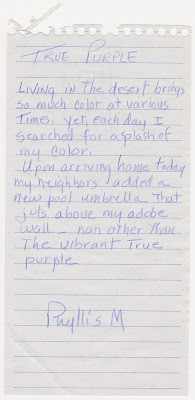 TRUE PURPLE
LIVING IN The desert brings
so much color at various
Times. yet, each day I
searched for a splash of
my color.
Upon arriving home today
my neighbors added a
new pool umbrella that
juts above my adobe
wall - non other than
The vibrant True
purple
Phyllis M